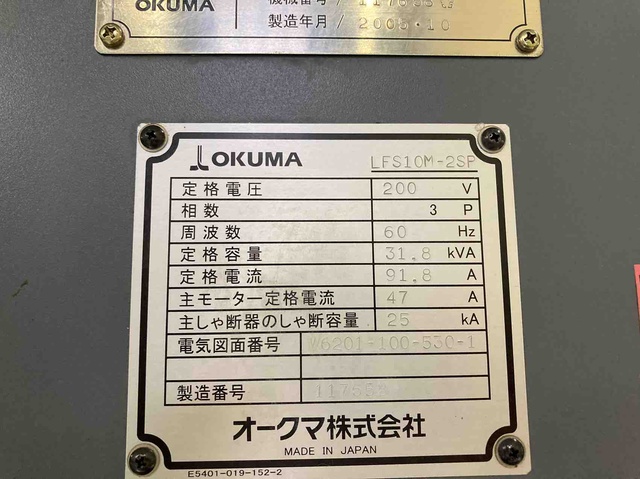 OKUMA
機械番号 /
製造年月 / 2005・10
OKUMA LFS10M-2SP
定格電圧 200 V
相数 3 P
周波数 60 Hz
定格容量 31.8 kVA
定格電流 91.8 A
主モーター定格電流 47 A
主しゃ断器のしゃ断容量 25 kA
電気図面番号 W6201-100-530-1
製造番号
オークマ株式会社
MADE IN JAPAN
E5401-019-152-2